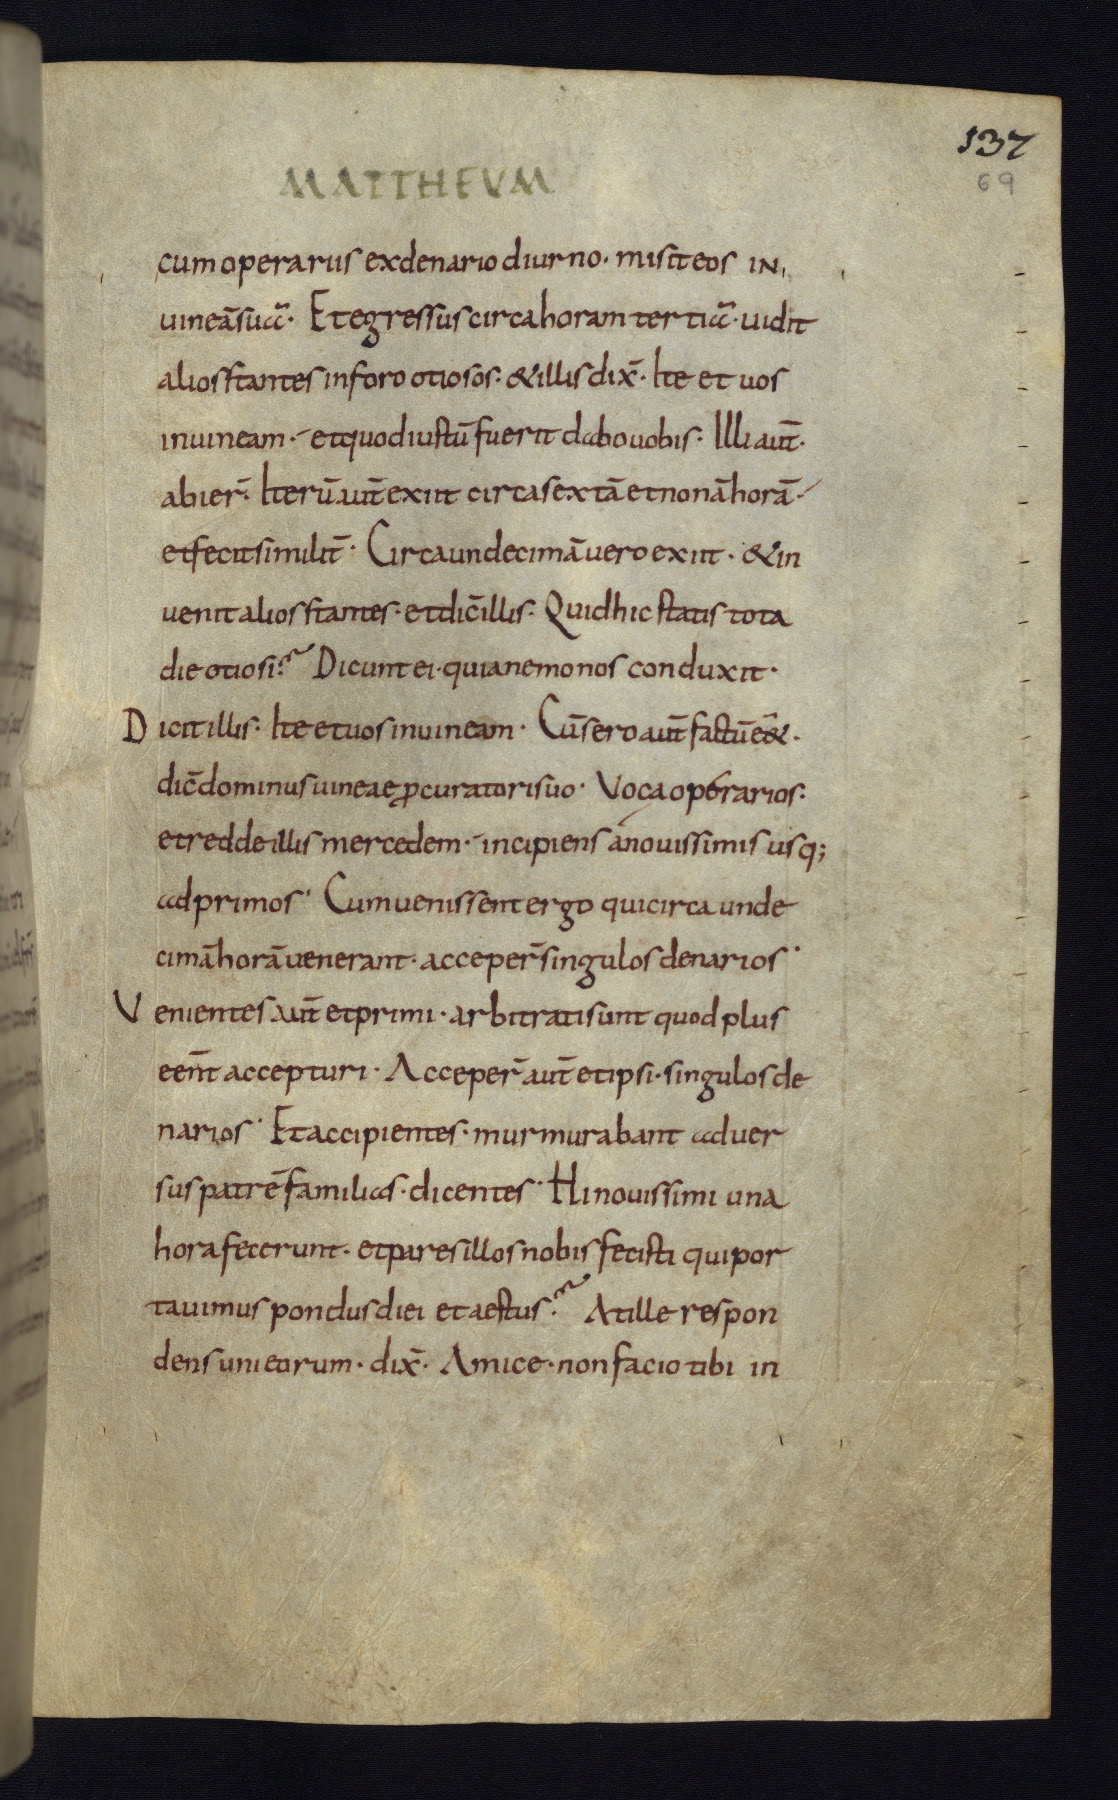 137
69
MATTHEUM
cum operariis ex denario diurno· misit eos in
uineā suā· Et egressus circa horam tertiā· uidit
alios stantes in foro otiosos· & illis dix̄· Ite et uos
in uineam· et quod iustū fuerit dabo uobis· Illi aut̄·
abier̄· Iterū aut̄ exiit circa sextā et nonā horā·
et fecit similit̄· Circa undecimā uero exiit· & in
venit alios stantes· et dic̄ illis· Quid hic statis tota
die otiosi? Dicunt ei· quia nemo nos conduxit·
Dicit illis· Ite et uos in uineam· Cū sero aut̄ factū e&̄·
dic̄ dominus uineae ꝓcuratori suo· Voca operarios·
et redde illis mercedem· incipiens a nouissimis usq;
ad primos· Cum uenissent ergo qui circa unde
cimā horā uenerant· acceper̄ singulos denarios·
Venientes aut̄ et primi· arbitrati sunt quod plus
eēnt accepturi· Acceper̄ aut̄ et ipsi· singulos de
narios· Et accipientes· murmurabant aduer
sus patrē familias· dicentes· Hi nouissimi una
hora fecerunt· et pares illos nobis fecisti qui por
tauimus pondus diei et aestus? At ille respon
dens uni eorum· dix̄· Amice· non facio tibi in